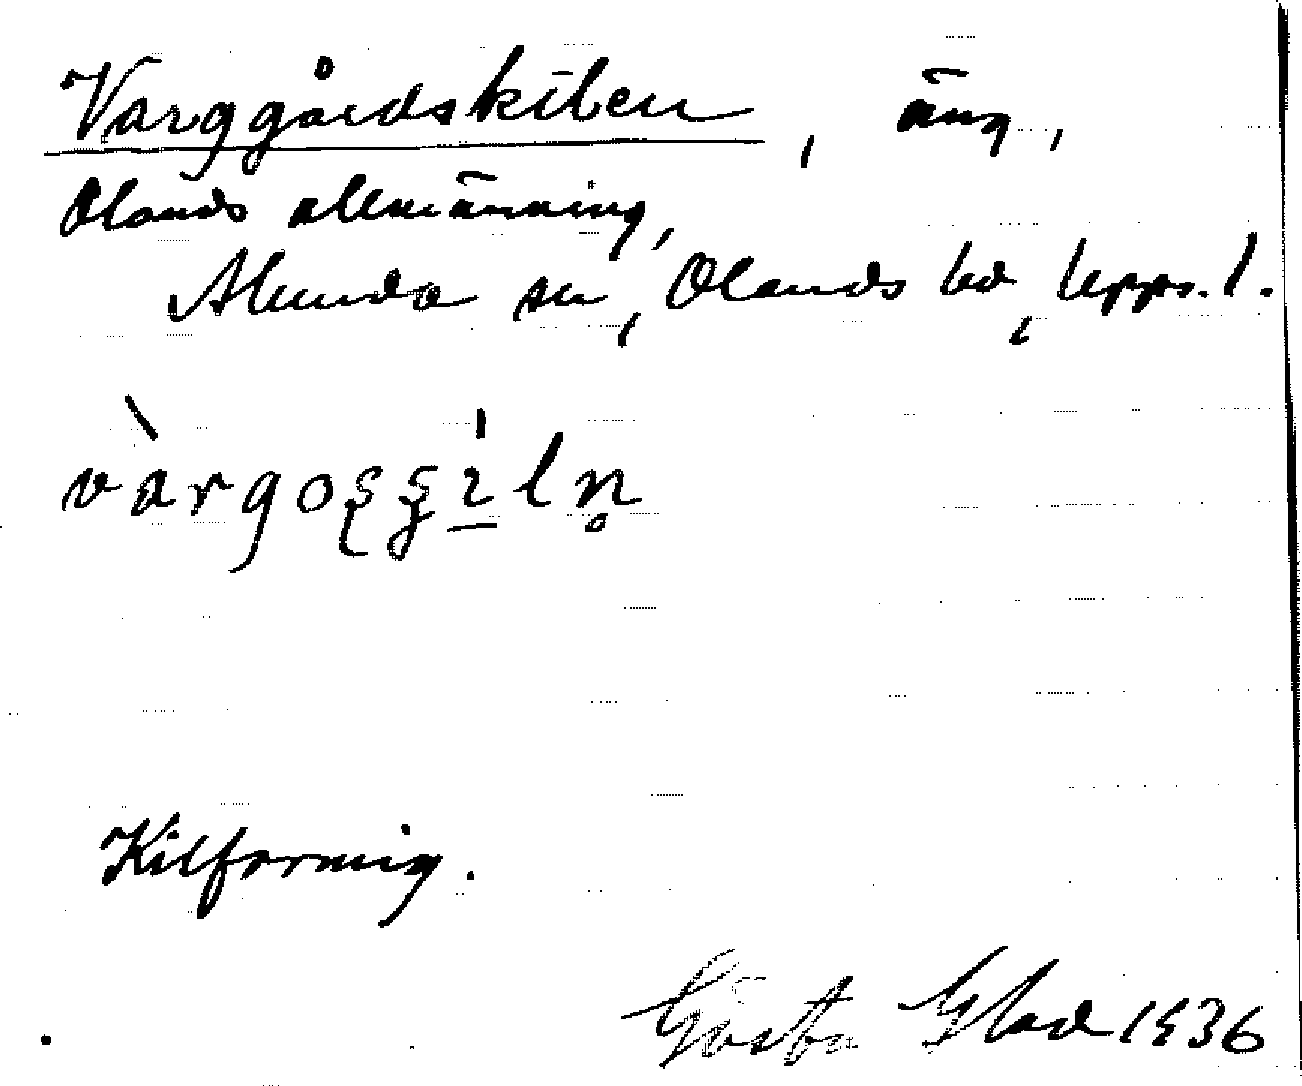 Varggårdskilen, äng,
Olands allmänning,
Alunda sn, Olands hd, Upps. l.
Kilformig.
Gösta Glad 1936